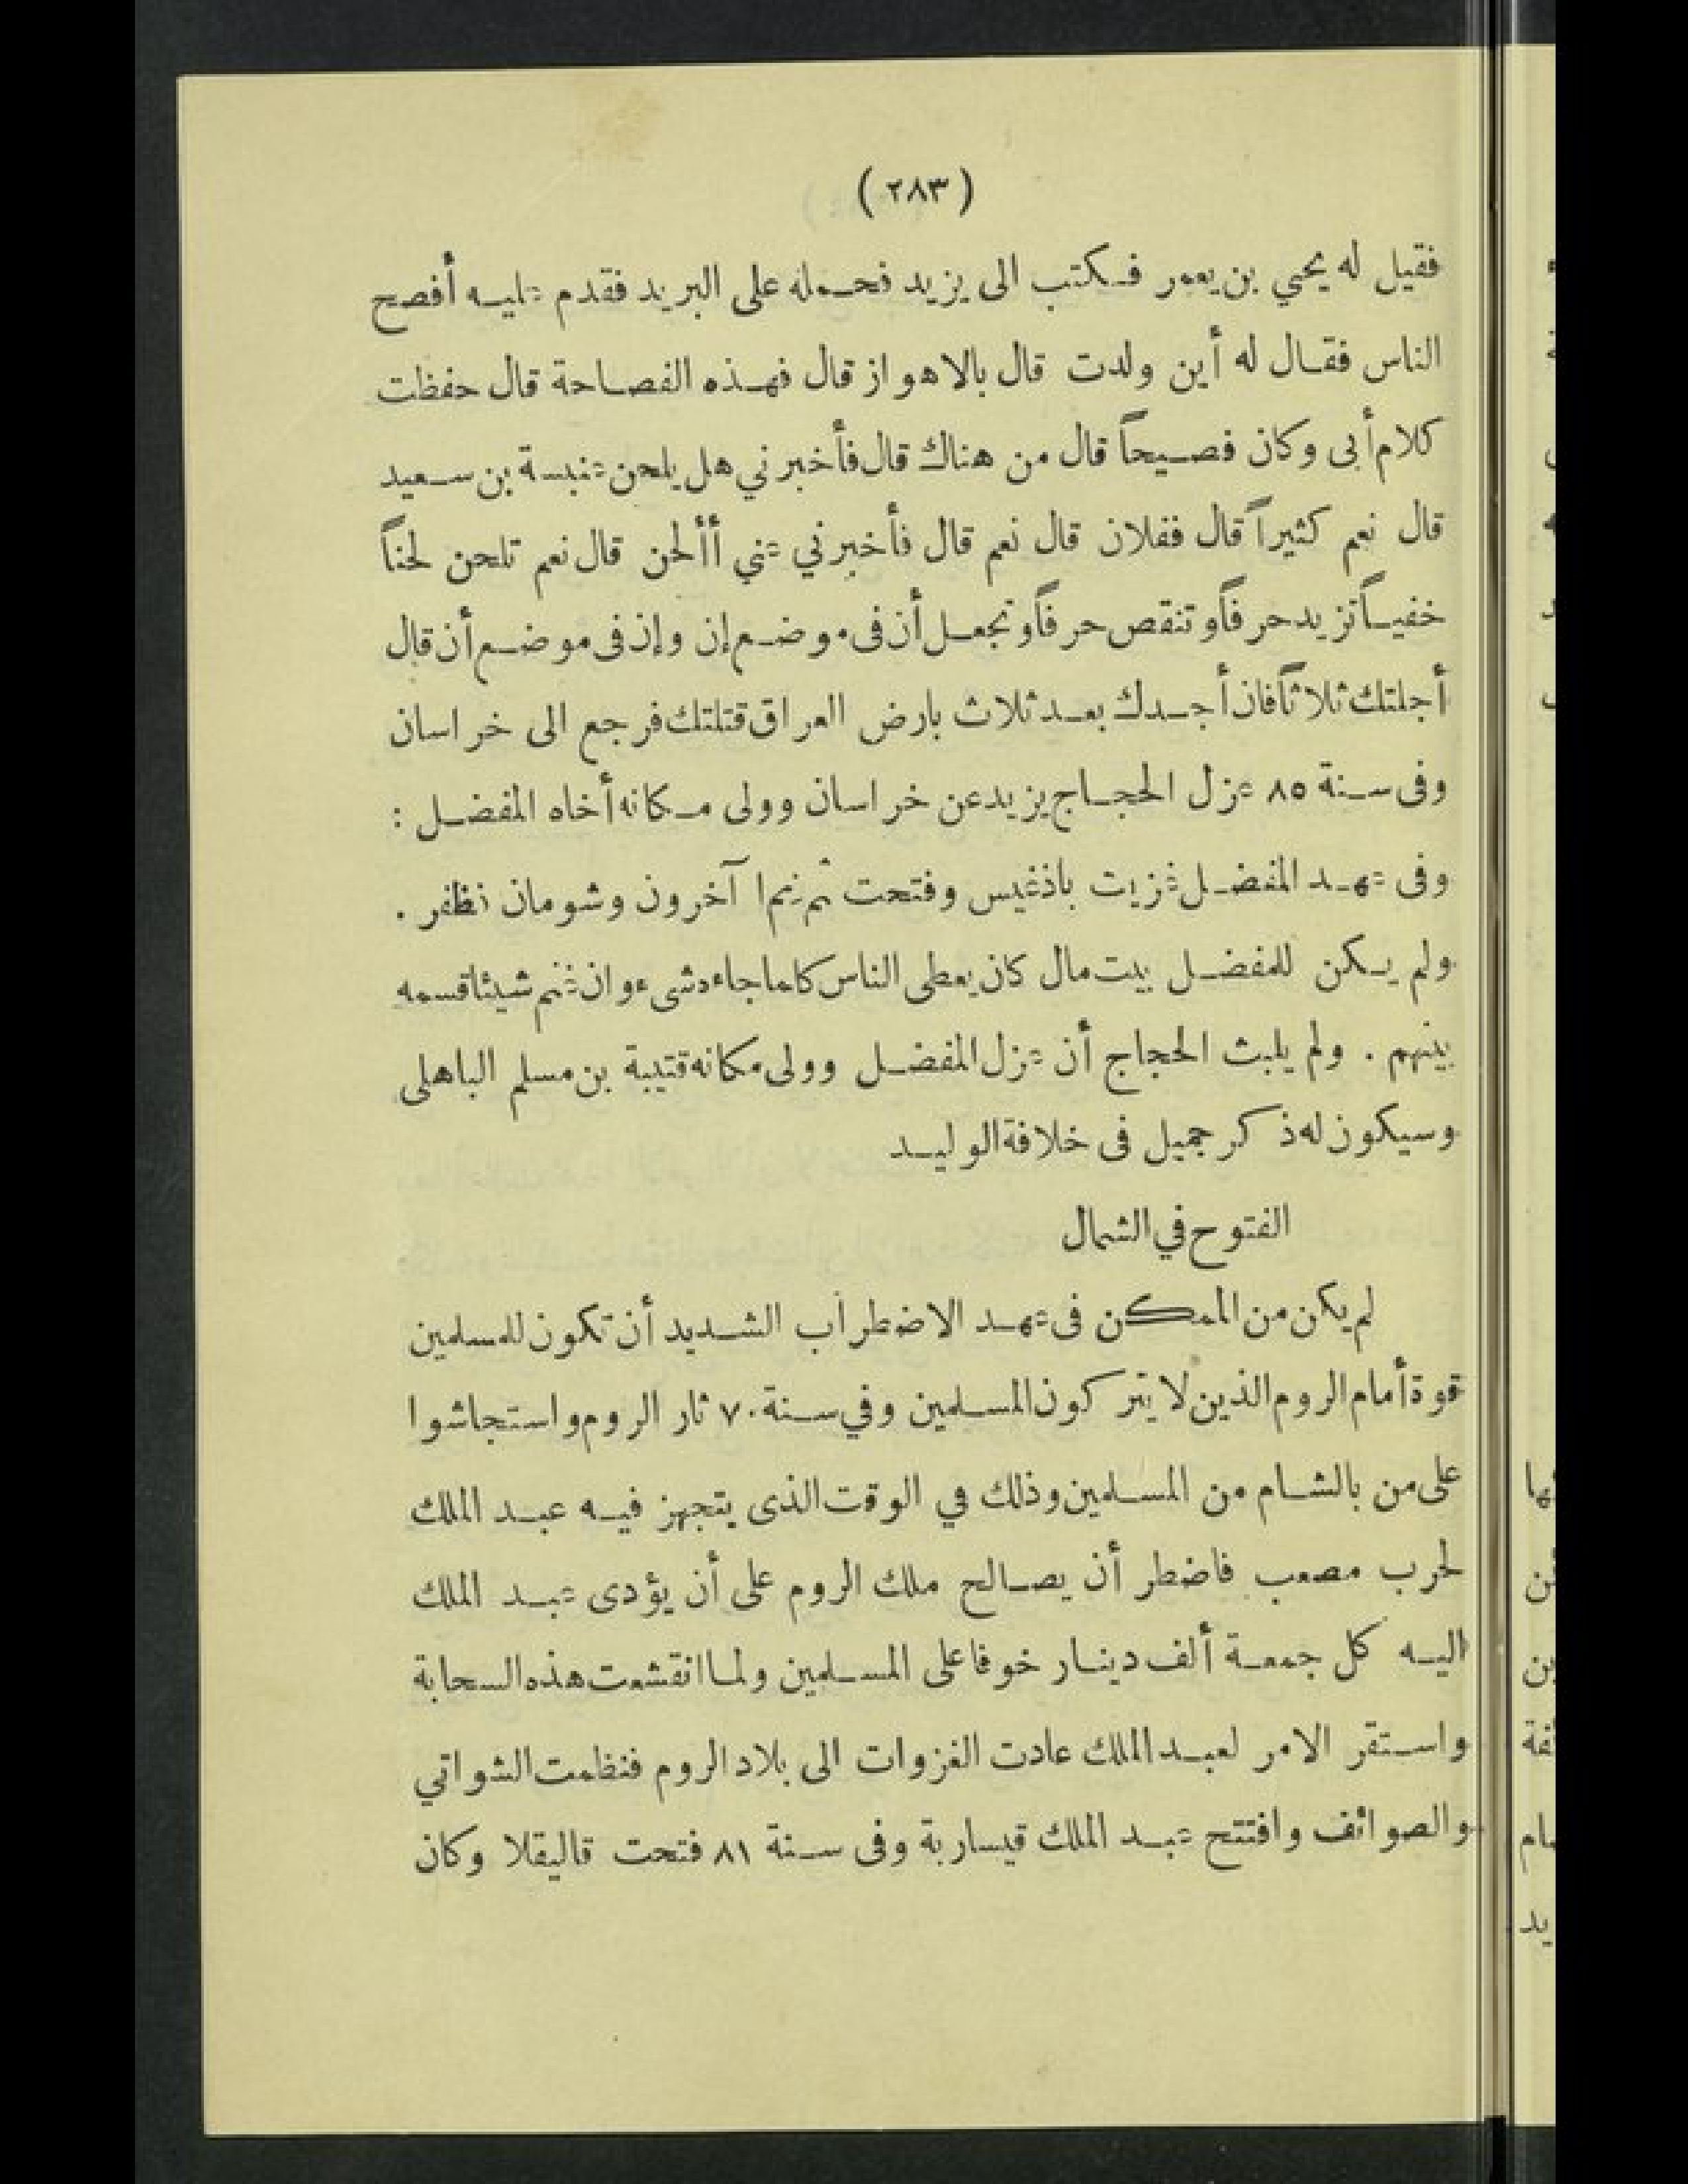 (٢٨٣)
فقيل له يحيي بن يعمر فكتب الى يزيد فحمله على البريد فقدم عليه أفصح
الناس فقال له أين ولدت قال بالاهواز قال فهذه الفصاحة قال حفظت
كلام أبى وكان فصيحاً قال من هناك قال فأخبرني هل يلحن عنبسة بن سعيد
قال نعم كثيراً قال ففلان قال نعم قال فأخبرني عني أألحن قال نعم تلحن لحناً
خفيـاً تزيد حرفاً وتنقص حرفاً وتجعل أن فى موضع إن وإن فى موضع أن قال
أجلتك ثلاثاً فان أجدك بعد ثلاث بارض العراق قتلتك فرجع الى خراسان
وفى سنة ٨٥ عزل الحجاج يزيد عن خراسان وولى مكانه أخاه المفضل :
وفى عهد المفضل غزيت باذغيس وفتحت ثم آخرون وشومان فظفر .
ولم يكن للمفضل بيت مال كان يعطى الناس كلما جاءه شىء وان غنم شيئا قسمه
بينهم . ولم يلبث الحجاج أن عزل المفضل وولى مكانه قتيبة بن مسلم الباهلى
وسيكون له ذكر جميل فى خلافة الوليد
الفتوح في الشمال
لم يكن من الممكن فى عهد الاضطراب الشديد أن تكون للمسلمين
قوة أمام الروم الذين لا يتركون المسلمين وفي سنة ٧٠ ثار الروم واستجاشوا
على من بالشام من المسلمين وذلك في الوقت الذى يتجهز فيه عبد الملك
لحرب مصعب فاضطر أن يصالح ملك الروم على أن يؤدى عبد الملك
اليه كل جمعة ألف دينار خوفا على المسلمين ولما انقشعت هذه السحابة
واستقر الامر لعبد الملك عادت الغزوات الى بلاد الروم فنظمت الشواتي
والصوائف وافتتح عبد الملك قيسارية وفى سنة ٨١ فتحت قاليقلا وكان